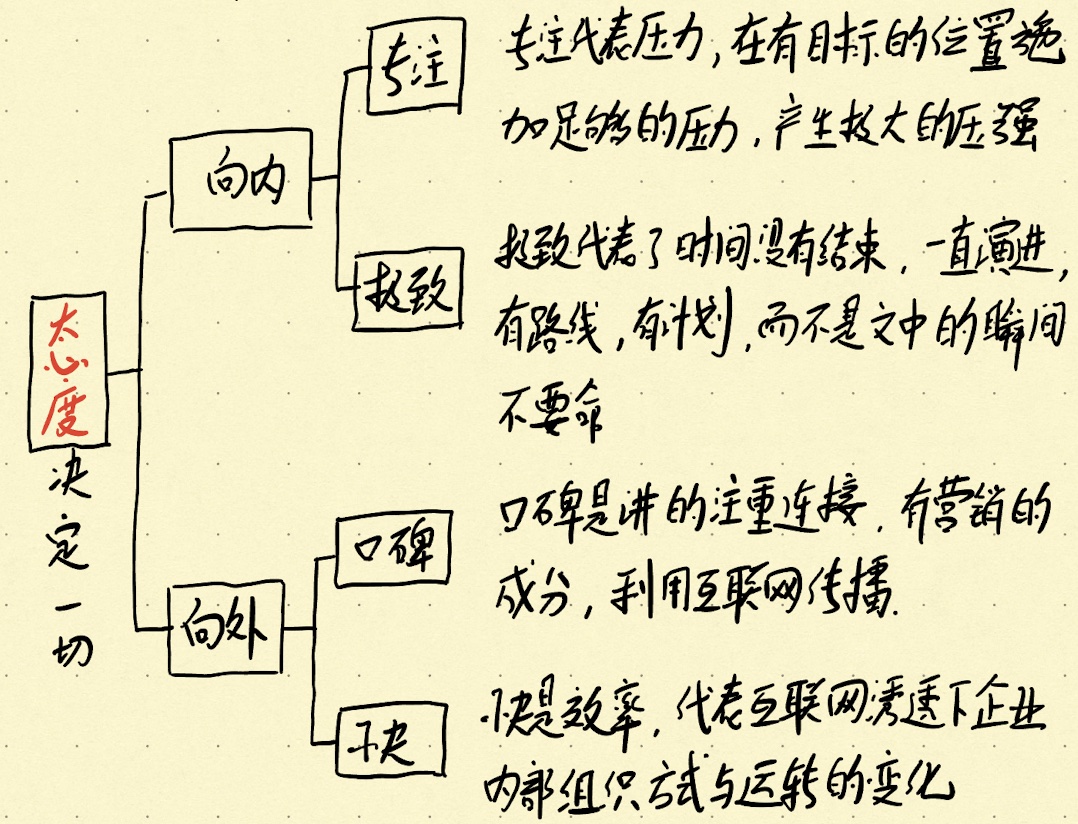 态度
决定一切
向内
专注
专注代表压力，在有目标的位置施
加足够的压力，产生极大的压强
极致
极致代表了时间没有结束，一直演进，
有路线，有计划，而不是文中的瞬间
不要命
向外
口碑
口碑是讲的注重连接，有营销的
成分，利用互联网传播.
快
快是效率，代表互联网渗透下企业
内部组织方式与运转的变化